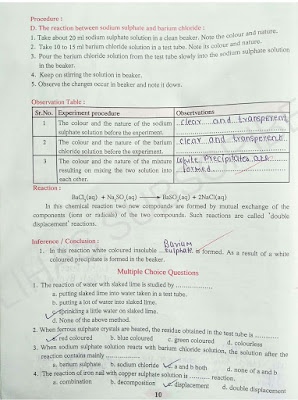 Procedure :
D. The reaction between sodium sulphate and barium chloride :
1. Take about 20 ml sodium sulphate solution in a clean beaker. Note the colour and nature.
2. Take 10 to 15 ml barium chloride solution in a test tube. Note its colour and nature.
3. Pour the barium chloride solution from the test tube slowly into the sodium sulphate solution
in the beaker.
4. Keep on stirring the solution in beaker.
5. Observe the changes occur in beaker and note it down.
Observation Table :
Sr.No. Experiment procedure Observations
1 The colour and the nature of the sodium clear and transperent
sulphate solution before the experiment.
2 The colour and the nature of the barium clear and transperent
chloride solution before the experiment.
3 The colour and the nature of the mixture white Precipitates are
resulting on mixing the two solution into formed
each other.
Reaction :
BaCl2(aq) + Na2SO4(aq) → BaSO4(aq) + 2NaCl(aq)
In this chemical reaction two new compounds are formed by mutual exchange of the
components (ions or radicals) of the two compounds. Such reactions are called 'double
displacement' reactions.
Inference / Conclusion :
1. In this reaction white coloured insoluble Barium sulphate is formed. As a result of a white
coloured precipitate is formed in the beaker.
Multiple Choice Questions
1. The reaction of water with slaked lime is studied by ................
a. putting slaked lime into water taken in a test tube.
b. putting a lot of water into slaked lime.
c. sprinkling a little water on slaked lime.
d. None of the above method.
2. When ferrous sulphate crystals are heated, the residue obtained in the test tube is ............
a. red coloured b. blue coloured c. green coloured d. colourless
3. When sodium sulphate solution reacts with barium chloride solution, the solution after the
reaction contains mainly ................
a. barium sulphate b. sodium chloride c. a and b both d. none of a and b
4. The reaction of iron nail with copper sulphate solution is ............ reaction.
a. combination b. decomposition c. displacement d. double displacement
10